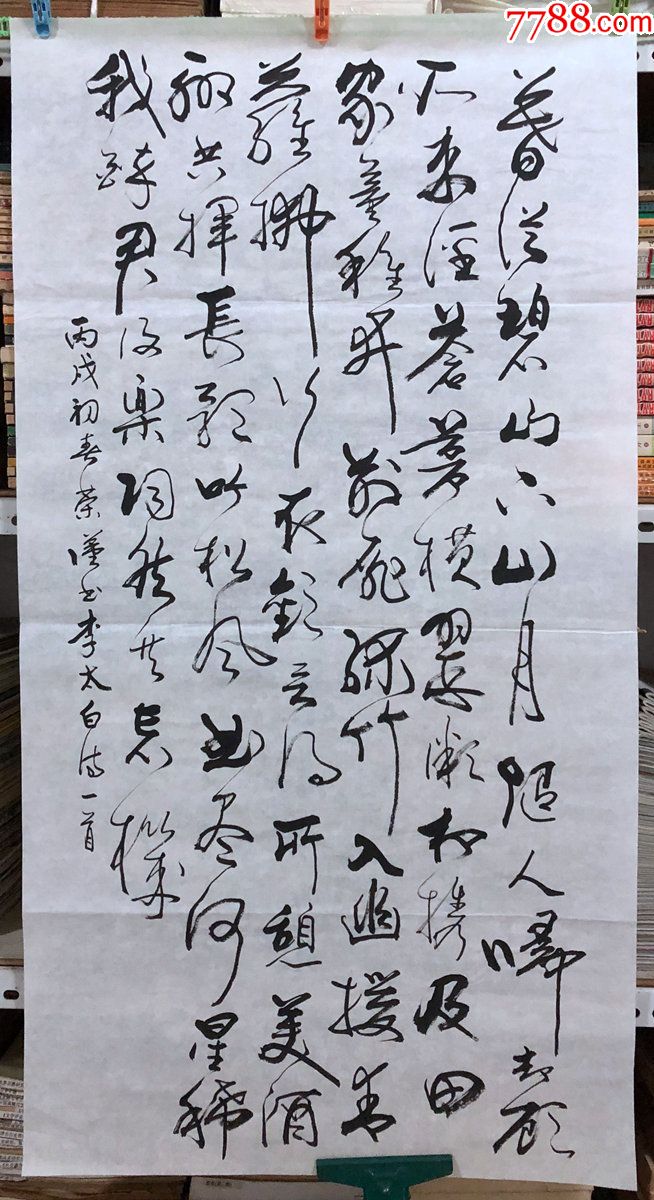 7788.com
暮從碧山下山月隨人歸却顧
所來徑蒼蒼横翠微相携及田
家童稚開荆扉緑竹入幽徑青
蘿拂行衣歡言得所憩美酒
聊共揮長歌吟松風曲尽河星稀
我醉君復樂陶然共忘機
丙戌初春荣书李太白诗一首